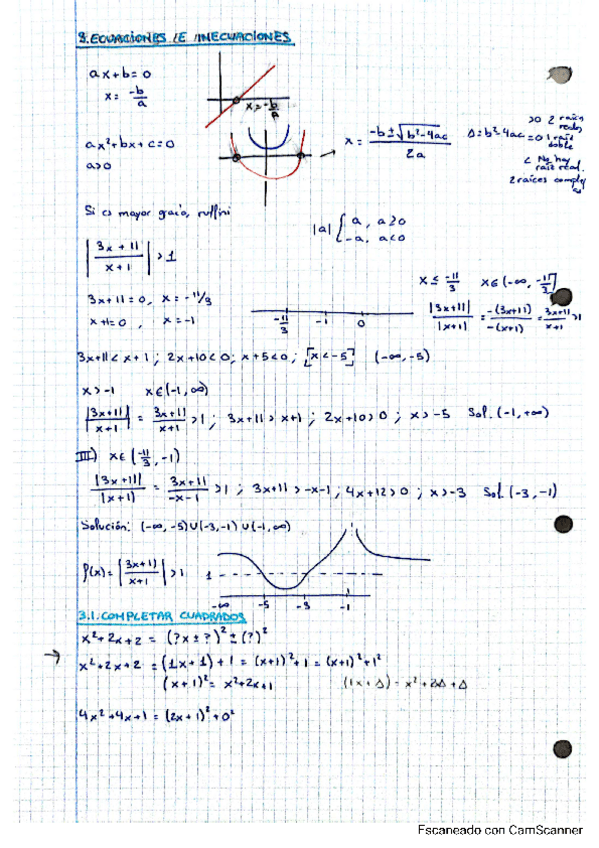 3. ECUACIONES E INECUACIONES
ax+b=0
x= -b/a
x=-b/a
ax²+bx+c=0
a>0
x = (-b±√(b²-4ac))/2a
Δ=b²-4ac
>0 2 raíces reales
=0 1 raíz doble
< No hay raíz real.
2 raíces complejas
Si es mayor grado, ruffini
|a| { a, a≥0
-a, a<0
|(3x+11)/(x+1)| >1
x ≤ -11/3 x∈(-∞, -11/3]
3x+11=0, x=-11/3
x+1=0, x=-1
-11/3 -1 0
|3x+11|/|x+1| = -(3x+11)/-(x+1) = (3x+11)/(x+1) >1
3x+11<x+1; 2x+10<0; x+5<0; [x<-5] (-∞,-5)
x>-1 x∈(-1,∞)
|3x+11|/|x+1| = (3x+11)/(x+1) >1; 3x+11>x+1; 2x+10>0; x>-5 Sol. (-1,+∞)
III) x∈(-11/3,-1)
|3x+11|/|x+1| = (3x+11)/(-x-1) >1; 3x+11>-x-1; 4x+12>0; x>-3 Sol (-3,-1)
Solución: (-∞,-5)∪(-3,-1)∪(-1,∞)
1
-∞ -5 -3 -1
3.1. COMPLETAR CUADRADOS
x²+2x+2 = (?x±?)²±(?)²
(x+1)²= x²+2x+1
4x²+4x+1= (2x+1)²+0²
Escaneado con CamScanner